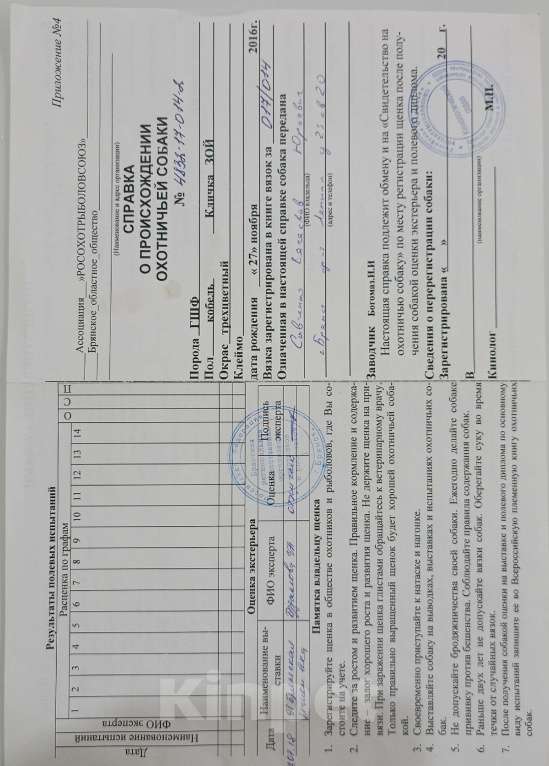 Приложение №4
Ассоциация «РОСОХОТРЫБОЛОВСОЮЗ»
Брянское_областное_общество
(Наименование и адрес организации)
СПРАВКА
О ПРОИСХОЖДЕНИИ
ОХОТНИЧЬЕЙ СОБАКИ
№
Порода ГШФ
Пол кобель. Кличка ЗОЙ
Окрас_трехцветный
Клеймо
дата рождения « 27» ноября 2016г.
Вязка зарегистрирована в книге вязок за 017/014
Означенная в настоящей справке собака передана
(ФИО владельца)
(адрес и телефон)
Заводчик Богомаз.И.И
Настоящая справка подлежит обмену и на «Свидетельство на
охотничью собаку» по месту регистрации щенка после полу-
чения собакой оценки экстерьера и полевого диплома.
Сведения о перерегистрации собаки:
Зарегистрирована « » 20 г.
В
(наименование организации)
Кинолог М.П.
Результаты полевых испытаний
Дата
Наименование испытаний
ФИО эксперта
Расценка по графам
1 2 3 4 5 6 7 8 9 10 11 12 13 14
О С П
Оценка экстерьера
Дата Наименование вы-
ставки
ФИО эксперта Оценка Подпись
эксперта
Памятка владельцу щенка
1. Зарегистрируйте щенка в обществе охотников и рыболовов, где Вы со-
стоите на учете.
2. Следите за ростом и развитием щенка. Правильное кормление и содержа-
ние – залог хорошего роста и развития щенка. Не держите щенка на при-
вязи. При заражении щенка глистами обращайтесь к ветеринарному врачу.
Только правильно выращенный щенок будет хорошей охотничьей соба-
кой.
3. Своевременно приступайте к натаске и нагонке.
4. Выставляйте собаку на выводках, выставках и испытаниях охотничьих со-
бак.
5. Не допускайте бродяжничества своей собаки. Ежегодно делайте собаке
прививку против бешенства. Соблюдайте правила содержания собак.
6. Раньше двух лет не допускайте вязки собак. Оберегайте суку во время
течки от случайных вязок.
7. После получения собакой оценки на выставке и полевого диплома по основному
виду испытаний запишите ее во Всероссийскую племенную книгу охотничьих
собак.